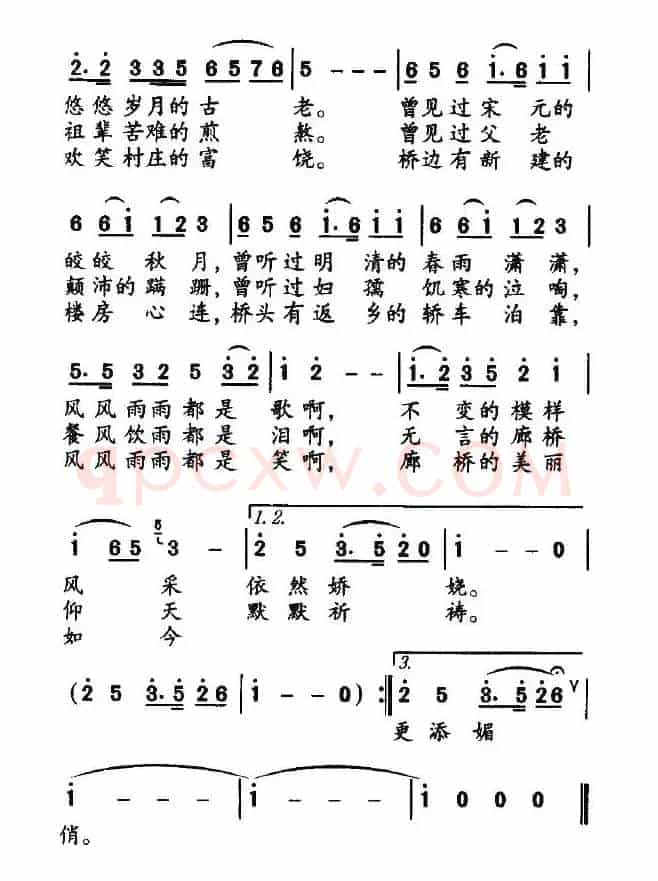 2̇. 2̇ 3 3 5 6 5 7 6 | 5 - - - | 6 5 6 1̇. 6 1̇ 1̇ |
悠悠岁月的古 老。 曾见过宋 元的
祖辈苦难的煎 熬。 曾见过父 老
欢笑村庄的富 饶。 桥边有新 建的
6 6 1̇ 1̇ 2̇ 3̇ | 6 5 6 1̇. 6 1̇ 1̇ | 6 6 1̇ 1̇ 2̇ 3̇ |
皎皎 秋 月,曾听过明 清的春雨 潇 潇,
颠沛的蹒 跚,曾听过妇 孺 饥寒的泣 啕,
楼房 心 连,桥头有返 乡的轿车 泊 靠,
5. 5 3 2 5 3̇ 2̇ | 1̇ 2̇ - - | 1̇. 2̇ 3̇ 5̇ 2̇ 1̇ |
风风雨雨都是 歌啊, 不 变的模样
餐风饮雨都是 泪啊, 无 言的廊桥
风风雨雨都是 笑啊, 廊 桥的美丽
qpcxw.com
1.2.
1̇ 6 5 6 3 - | 2̇ 5 3̇. 5̇ 2̇ 0 | 1̇ - - 0 |
风 采 依然娇 娆。
仰 天 默默祈 祷。
如 今
3.
(2̇ 5 3̇. 5̇ 2̇ 6 | 1̇ - - 0) :‖ 2̇ 5 3̇. 5̇ 2̇ 6 ∨ |
更添媚
1̇ - - - | 1̇ - - - | 1̇ 0 0 0 ‖
俏。